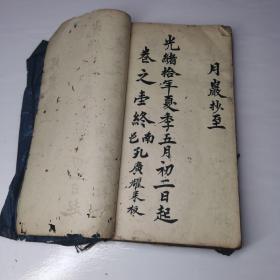 月嚴抄至
光緒拾年夏季五月初二日起
卷之壹終南邑孔廣耀来板